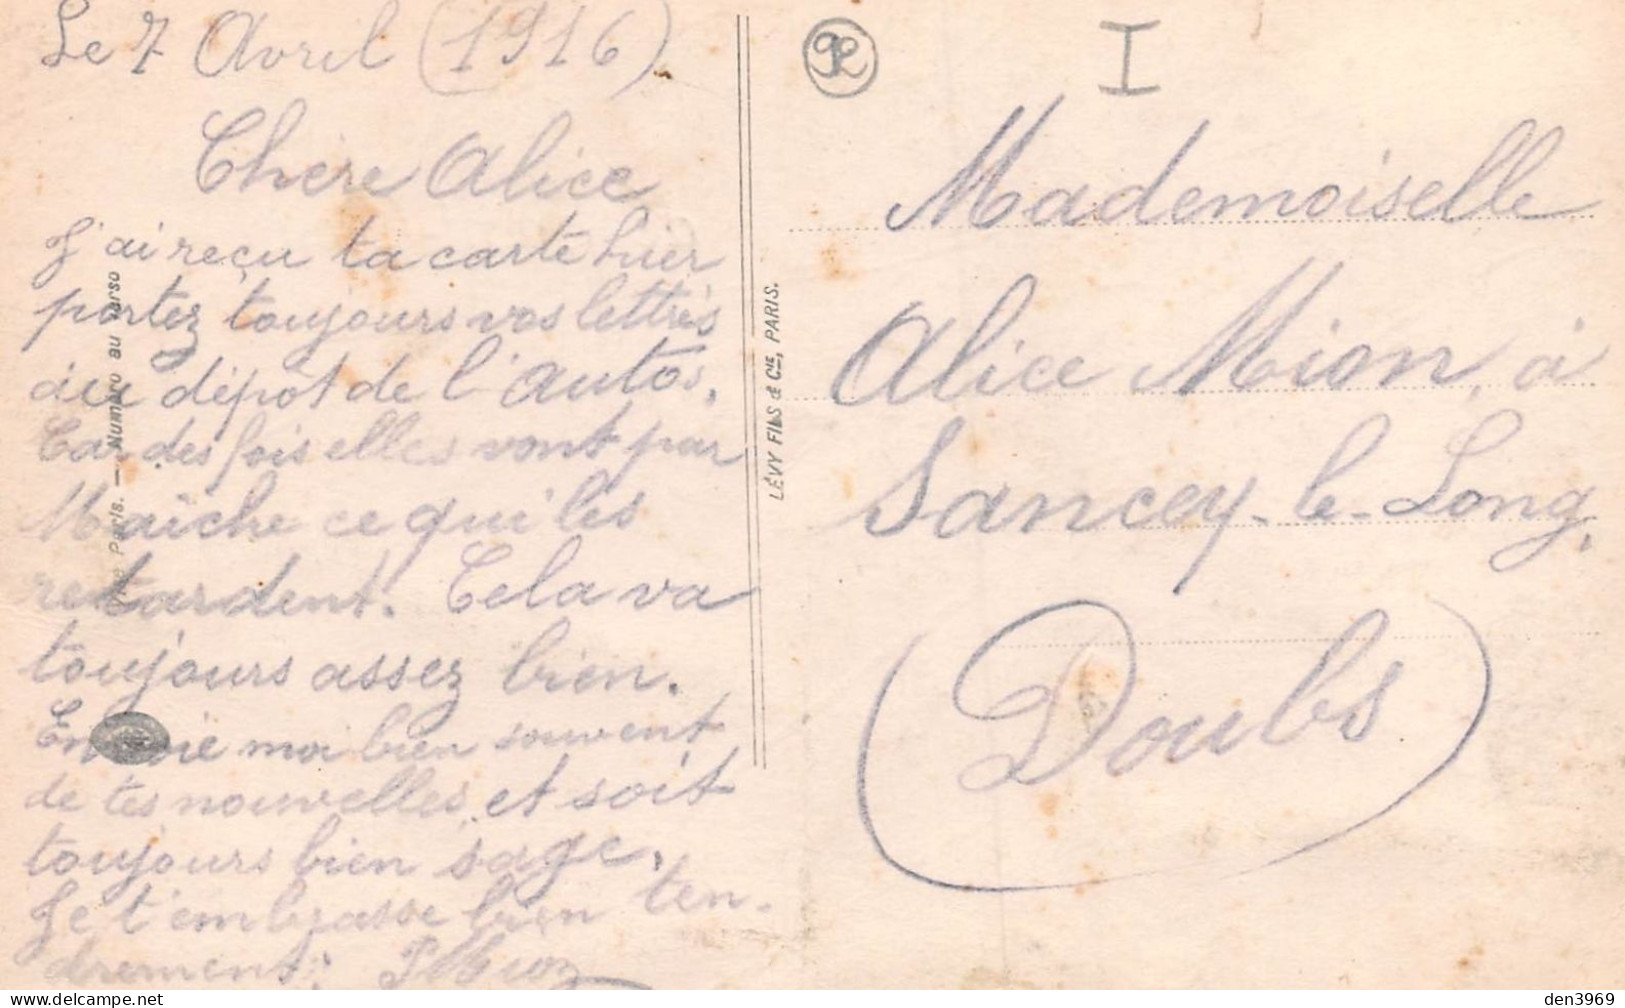 Le 7 Avril (1916)
Chère Alice
J'ai reçu ta carte hier
portez toujours vos lettres
au dépôt de l'autos.
Car des fois elles vont par
Maîche ce qui les
retardent. Cela va
toujours assez bien.
Envoie moi bien souvent
de tes nouvelles et soit
toujours bien sage.
Je t'embrasse bien ten-
drement:
Paris. — Numéro au verso
LÉVY FILS & Cie, PARIS.
I
Mademoiselle
Alice Mion, à
Sancey-le-Long,
(Doubs)
den3969